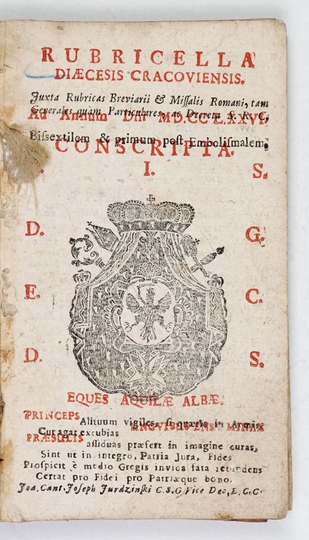 RUBRICELLA
DIÆCESIS CRACOVIENSIS.
Juxta Rubricas Breviarii & Missalis Romani, tam
Generales quàm Particulares, ac Decreta S. R. C.
Ad Annum Dni MDCCLXXVI.
Bissextilem & primum post Embolismalem,
CONSCRIPTA.
I. S.
D. G.
E. C.
D. S.
EQUES AQUILÆ ALBÆ.
PRINCEPS
Alituum vigiles, si quærlo in Armis
Cur agat excubias
PRÆSULIS
assiduas præfert in imagine curas,
Sint ut in integro, Patria Jura, Fides
Prospicit è medio Gregis invicta fata retundens
Certat pro Fidei pro Patriæque bono.
Joa. Cant. Joseph Jurdzinski C. S. G. Vice Dec. E. C. C.